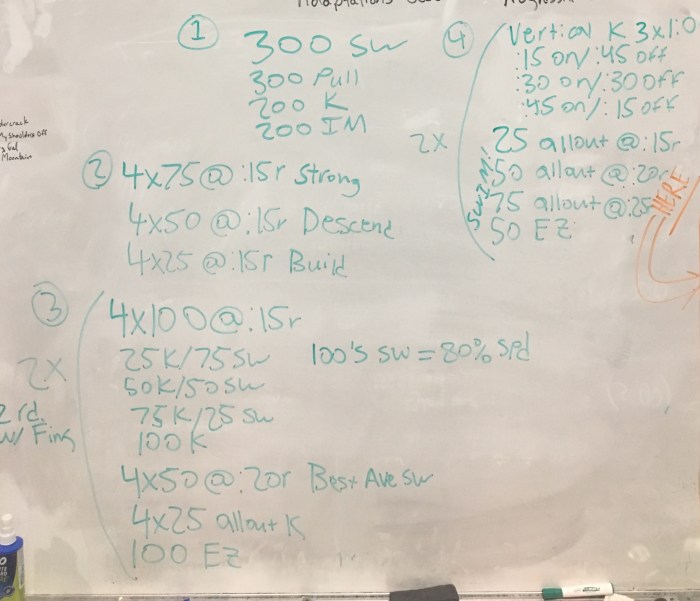 ①
300 SW
300 Pull
200 K
200 IM
② 4x75@:15r Strong
4x50@:15r Descend
4x25@:15r Build
③
2x
2 rd.
w/ Fins
4x100@:15r
25K/75SW 100's SW = 80% Spd
50K/50SW
75K/25 SW
100K
4x50@:20r Best Ave SW
4x25 allout K
100 EZ
④
2x
Vertical K 3x1:0
:15 on/:45 off
:30 on/:30 off
:45 on/:15 off
SWIM!
25 allout @:15r
50 allout @:20r
75 allout @:25
50 EZ
HERE
My Shoulders Off
Mountain